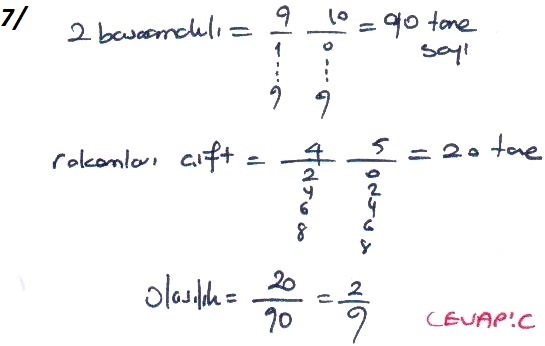 7/
2 basamaklı = 9 10 = 90 tane
1 0 sayı
9 9
rakamları çift = 4 5 = 20 tane
2 0
4 2
6 4
8 6
8
Olasılık = 20/90 = 2/9
CEVAP:C